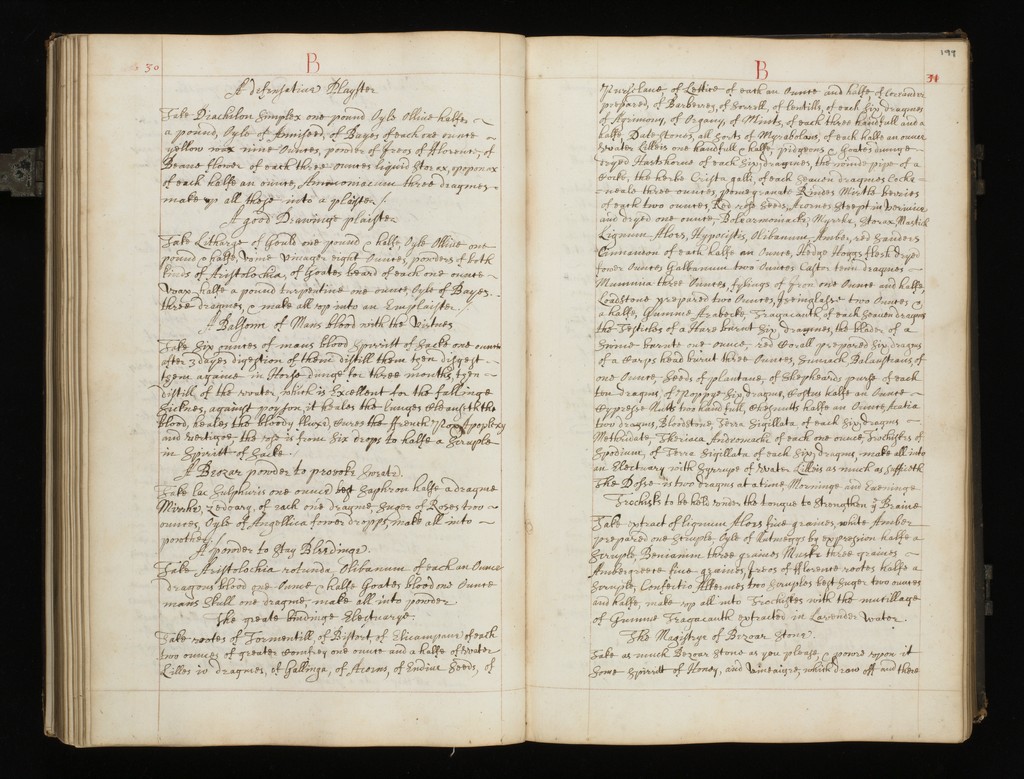 30
B
A defensative Playster
Take Diachilon simplex one pound Oyle Ollive halfe
a pound, Oyle of Anniseed, of Bayes of each one ounce
yellow wax nine Ounces, powder of Ireos of Florence, of
Beane flower of each three ounces liquid Storax, opoponax
of each halfe an ounce, Ammoniacum three dragmes
make up all these into a plaister
A good Drawinge plaister
Take Litharge of Gould one pound & halfe, Oyle Ollive one
pound & halfe, Vineager eight Ounces, powders of both
kinds of Aristolochia, of Goates beard of each one ounce
Wax halfe a pound turpentine one ounce, Oyle of Bayes
three dragmes, & make all up into an Emplaister
A Balsome of Mans blood with the Virtues
Take Six ounces of mans blood Spirritt of Sacke one ounce
after 3 dayes digestion of them distill them then digest
them againe in Horse dunge for three months, then
distill of the water, which is Excellent for the fallinge
Sicknes, against poyson, it heales the lunges Cleanseth the
blood, heales the bloody fluxe, Cures the French Pox Apoplexy
and vertigoe, the dose is from Six drops to halfe a Scruple
in Spirritt of Sacke
A Beozar powder to provoke Sweate
Take lac Sulphuris one ounce best Saphron halfe a dragme
Mirrhe, zedoary, of each one dragme, Suger of Roses two
ounces, Oyle of Angellica fower dropps, make all into
powther
A powder to Stay Bleedinge
Take Aristolochia rotunda, Olibanum of each an Ounce
dragons blood one Ounce & halfe Goates blood one Ounce
mans Skull one dragme, make all into powder
The greate bindinge Electuarye
Take rootes of Tormentill, of Bistort, of Elicampane of each
two ounces of greater Comfrey one ounce and a halfe of water
Lillies 10 dragmes, of Gallinga, of Acorus, of Endive Seeds, of
B
31
Purslane, of Lettice of each an Ounce and halfe, of Coriander
prepared, of Barberres, of Sorrell, of lentills, of each Six dragmes
of Agrimony, of Organy, of Mints, of each three handfull and a
halfe, Date stones, all Sorts of Myrabolans, of each halfe an ounce
water Lillies one handfull & halfe, pidgeons & Goates dunge
dryed Hartshorne of each Six dragmes, the winde pipe of a
Cock, the herbe Crista galli, of each Seaven dragmes Coche-
neale three ounces, pomegranate Rindes Mirtle berries
of each two ounces, Red rose Seeds, Acornes Steept in
and dryed one ounce, Bolearmoniacke, Myrrha, Storax Mastick
Lignum Aloes, Hypocistis, Olibanum, Amber, red Sanders
Cinnamon of each halfe an Ounce, Hedge Hoggs flesh dryed
fower Ounces Galbanum two Ounces Castor tenn dragmes
Mummia three Ounces, fylings of Iron one Ounce and halfe
Loadstone prepared two Ounces, Iseinglasse two Ounces &
a halfe, Gumme Arabecke, Tragacanth of each Seaven dragms
the Testicles of a Hare burnt Six dragmes, the blader of a
Swine burnte one ounce, red Corall prepared Six dragms
of a Carps head burnt three Ounces, Sumach, Balaustians of
one Ounce, Seeds of plantane, of Shepheards purse of each
ten dragms, of Poppye Six dragms, Costus halfe an Ounce
Cyppresse Nutts two handfull, Chesnutts halfe an Ounce Acatia
two dragms, Bloodstone, Terra Sigillata of each Six dragms
Methridate, Theriaca Andromachi of each one ounce, Trochiskes of
Spodium, of Terra Sigillata of each Six dragms, make all into
an Electuary with Syrrupe of water Lillies as much as Sufficeth
The Dosse is two dragms at a time, Morninge and Eveninge
Trochisks to be held under the tongue to Strengthen ye Braine
Take extract of lignum Aloes five graines, white Amber
prepared one Scruple, Oyle of Nutmeggs by expression halfe a
Scruple, Beniamin three graines Muske three graines
Ambergreece five graines, Ireos of Florence rootes halfe a
Scruple, Confectio Alkermes two Scruples best Suger two ounces
and halfe, make up all into Trochiskes with the mucillage
of Gumme Tragacanth extracted in Lavender water
The Magistrye of Bezoar Stone
Take as much Bezoar Stone as you please, & powre upon it
Some Spirritt of Honey, and Vineaigre, which draw off and there